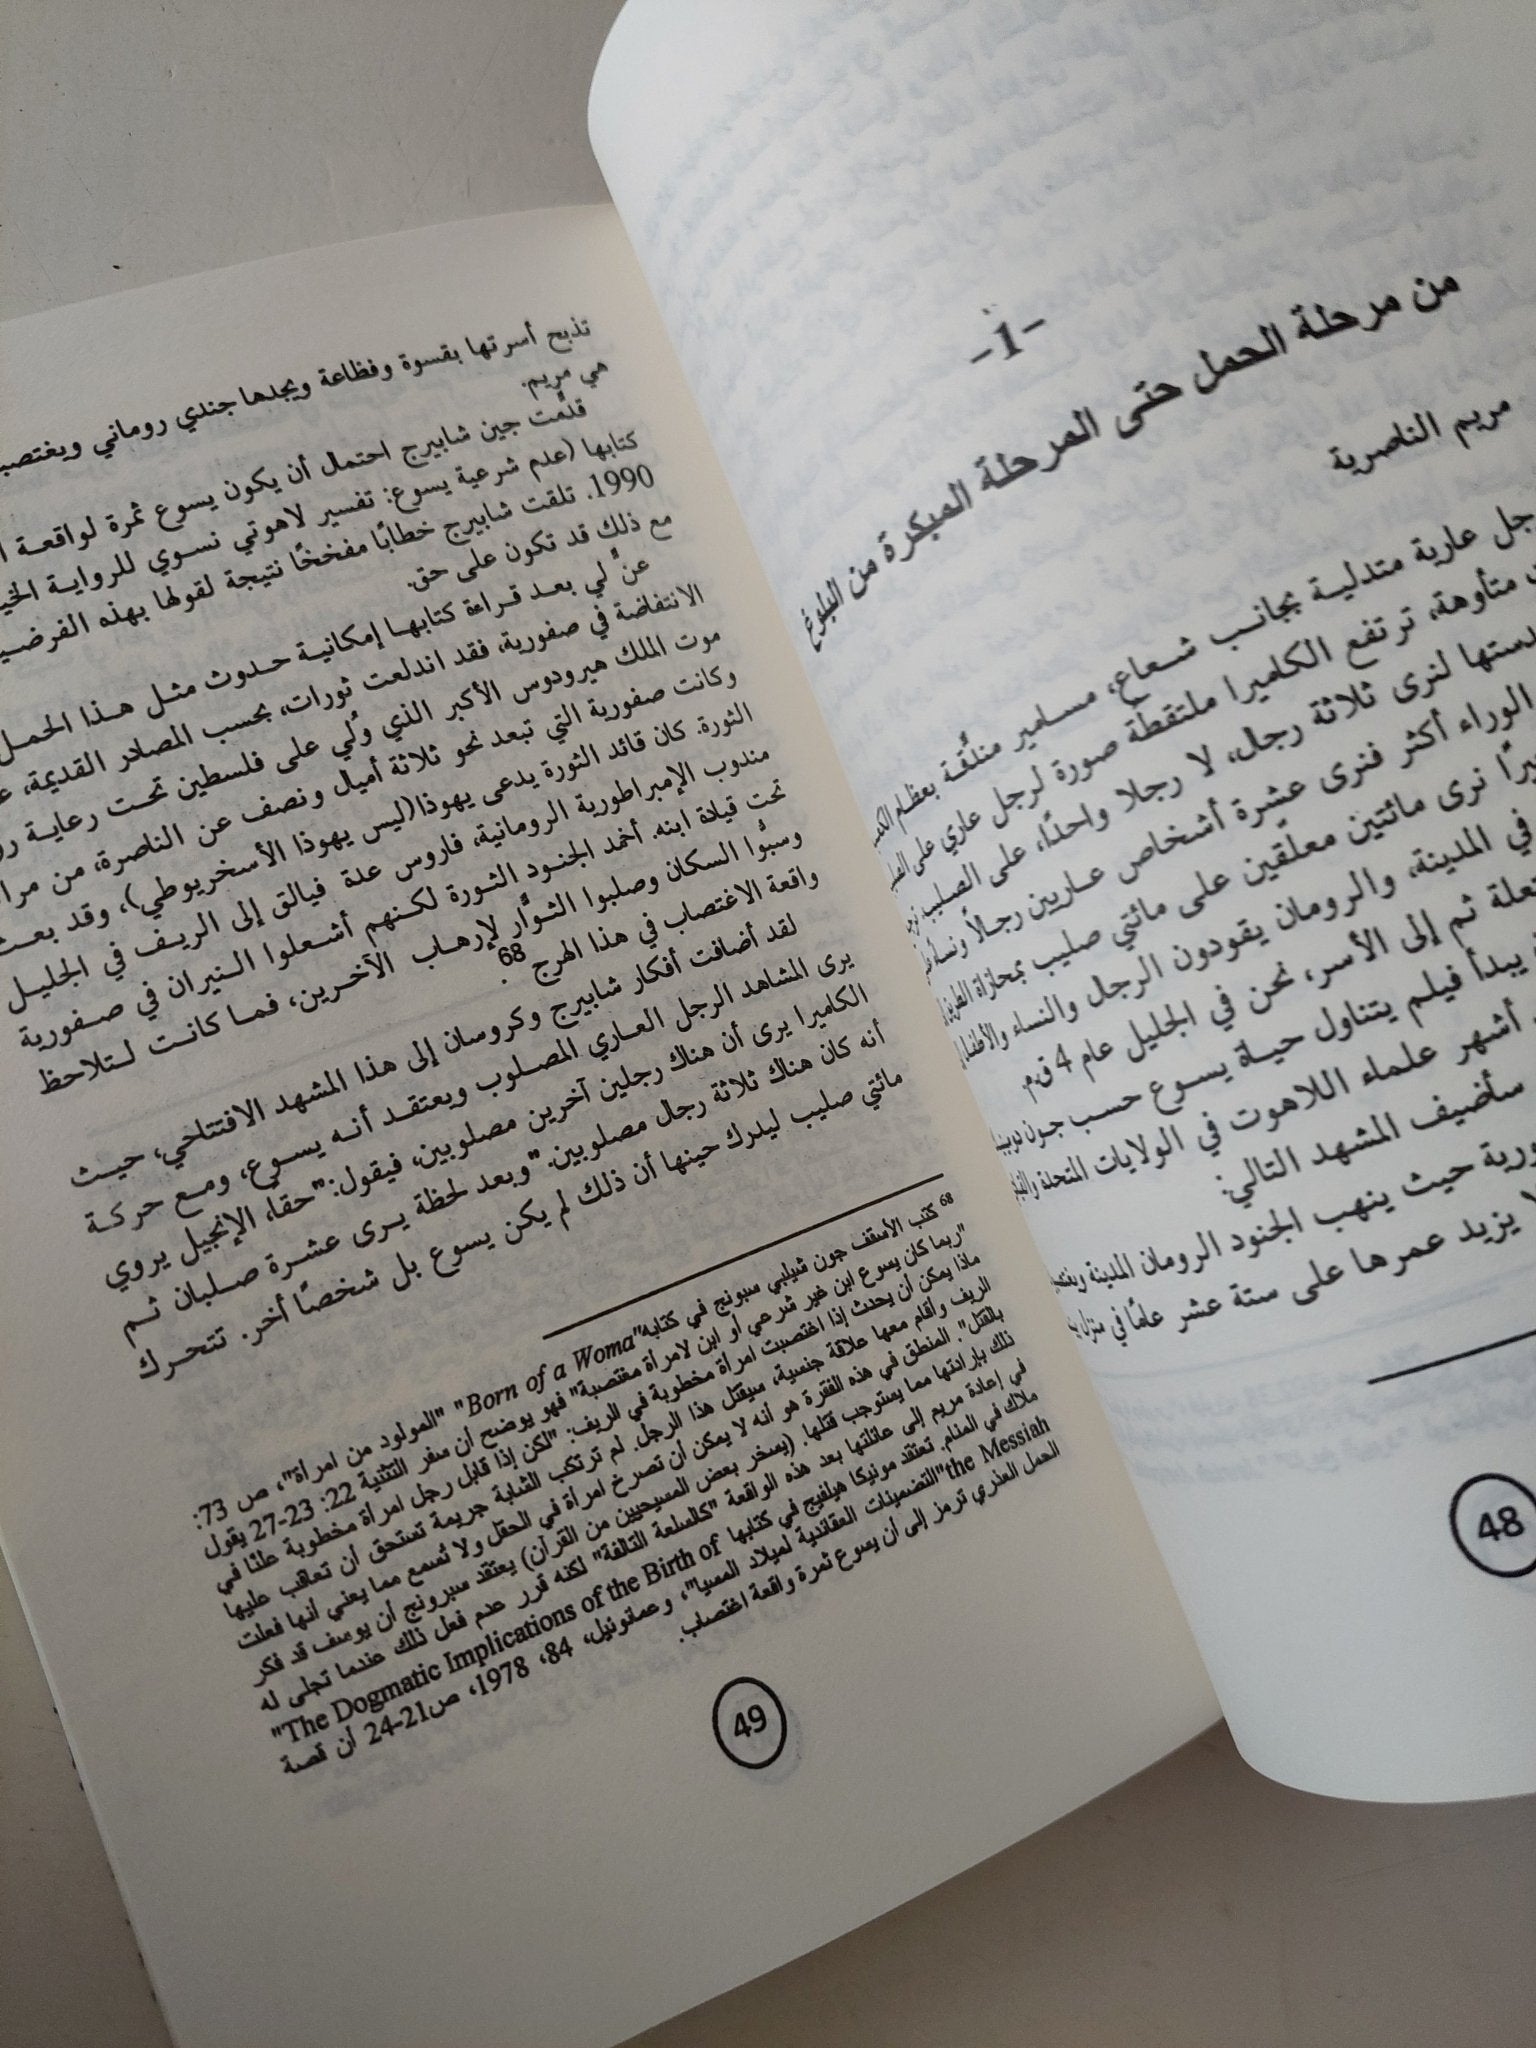 -1-
من مرحلة الحمل حتى المرحلة المبكرة من البلوغ
مريم الناصرية
عارية متدلية بجانب شعاع، مسامير منلّقة بعظام
متأوهة، ترتفع الكاميرا ملتقطة صورة لرجل عاري على
لنرى ثلاثة رجال، لا رجلا واحدًا، على الصليب
الوراء أكثر فنرى عشرة أشخاص عاريين رجالاً
نرى مائتين معلّقين على مائتي صليب بمحازاة
في المدينة، والرومان يقودون الرجال والنساء والأطفال
ثم إلى الأسر، نحن في الجليل عام 4 ق.م.
يبدأ فيلم يتناول حياة يسوع حسب جون
أشهر علماء اللاهوت في الولايات المتحدة
سأضيف المشهد التالي:
حيث ينهب الجنود الرومان المدينة
يزيد عمرها على ستة عشر عامًا في منزل
48
تذبح أسرتها بقسوة وفظاعة ويجدها جندي روماني
هي مريم.
قدمّت جين شابيرج احتمال أن يكون يسوع ثمرة لواقعة
كتابها (عدم شرعية يسوع: تفسير لاهوتي نسوي للرواية
1990. تلقت شابيرج خطابًا مفخخًا نتيجة لقولها بهذه
مع ذلك قد تكون على حق.
عنَّ لي بعد قراءة كتابها إمكانية حدوث مثل هذا الحمل
الانتفاضة في صفورية، فقد اندلعت ثورات، بحسب المصادر القديمة،
موت الملك هيرودوس الأكبر الذي وُلي على فلسطين تحت رعاية
وكانت صفورية التي تبعد نحو ثلاثة أميال ونصف عن الناصرة، من
الثورة. كان قائد الثورة يدعى يهوذا(ليس يهوذا الأسخريوطي)، وقد
مندوب الإمبراطورية الرومانية، فاروس عدة فيالق إلى الريف في الجليل
تحت قيادة ابنه. أخمد الجنود الثورة لكنهم أشعلوا النيران في صفورية
وسبُّوا السكان وصلبوا الثوَّار لإرهاب الآخرين، فما كانت لتلاحظ
واقعة الاغتصاب في هذا الهرج 68.
لقد أضافت أفكار شابيرج وكروسان إلى هذا المشهد الافتتاحي، حيث
يرى المشاهد الرجل العاري المصلوب ويعتقد أنه يسوع، ومع حركة
الكاميرا يرى أن هناك رجلين آخرين مصلوبين، فيقول: "حقًا، الإنجيل يروي
أنه كان هناك ثلاثة رجال مصلوبين." وبعد لحظة يرى عشرة صلبان ثم
مائتي صليب ليدرك حينها أن ذلك لم يكن يسوع بل شخصًا أخر. تتحرك
68 كتب الأسقف جون شيلبي سبونج في كتابه"Born of a Woma" "المولود من امرأة"، ص 73:
"ربما كان يسوع ابن غير شرعي أو ابن لامرأة مغتصبة" فهو يوضح أن سفر التثنية 22: 23-27 يقول
ماذا يمكن أن يحدث إذا اغتصبت امرأة مخطوبة في الريف: "لكن إذا قابل رجل امرأة مخطوبة علنًا في
الريف وأقام معها علاقة جنسية، سيقتل هذا الرجل. لم ترتكب الشابة جريمة تستحق أن تعاقب عليها
بالقتل". المنطق في هذه الفقرة هو أنه لا يمكن أن تصرخ امرأة في الحقل ولا تُسمع مما يعني أنها فعلت
ذلك بإرادتها مما يستوجب قتلها. (يسخر بعض المسيحيين من القرآن) يعتقد سبرونج أن يوسف قد فكر
في إعادة مريم إلى عائلتها بعد هذه الواقعة "كالسلعة التالفة" لكنه قرر عدم فعل ذلك عندما تجلى له
ملاك في المنام. تعتقد مونيكا هيلفيج في كتابها "The Dogmatic Implications of the Birth of
the Messiah"التضمينات العقائدية لميلاد المسيا"، وعمانوئيل، 84، 1978، ص21-24 أن قصة
الحمل العذري ترمز إلى أن يسوع ثمرة واقعة اغتصاب.
49